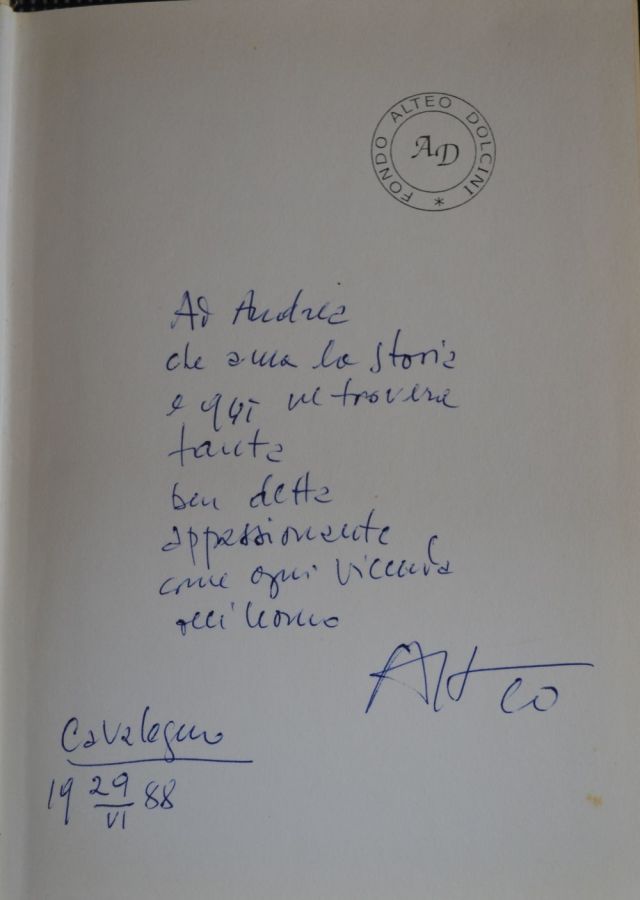 FONDO ALTEO DOLCINI *
AD
Ad Andrea
che ama la storia
e qui ne troverà
tanta
ben detta
appassionante
come ogni vicenda
dell'uomo
Alteo
Cavalegno
19 29/VI 88